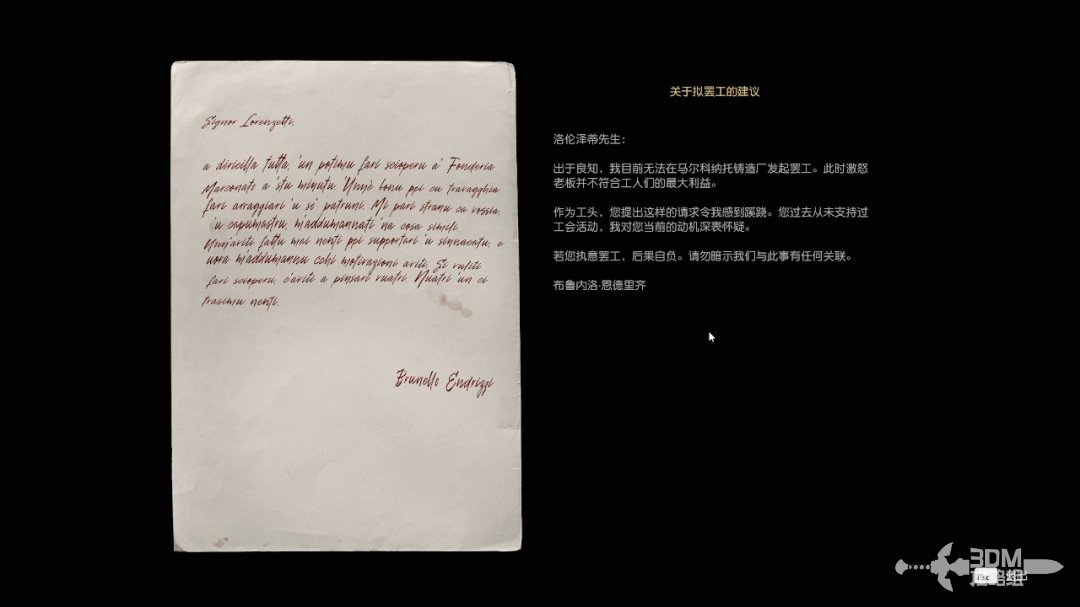 Signor Lorenzetti,
a diricilla tutta, 'un potimu fari scioperu a' Fonderia
Marconato a 'stu minutu. 'Unn'è bonu ppi cu travagghia
fari arraggiari 'u so' patruni. Mi pari stranu ca vossia,
'u capumastru, m'addumannati 'na cosa simili.
Unn'aviti fattu mai nenti ppi supportari 'u sinnacatu, e
uora m'addumannu cchi motivazioni aviti. Si vuliti
fari scioperu, c'aviti a pinsari vuatri. Nuatri 'un ci
trasimu nenti.
Brunello Endrizzi
关于拟罢工的建议
洛伦泽蒂先生：
出于良知，我目前无法在马尔科纳托铸造厂发起罢工。此时激怒
老板并不符合工人们的最大利益。
作为工头，您提出这样的请求令我感到蹊跷。您过去从未支持过
工会活动，我对您当前的动机深表怀疑。
若您执意罢工，后果自负。请勿暗示我们与此事有任何关联。
布鲁内洛·恩德里齐
3DM
Esc